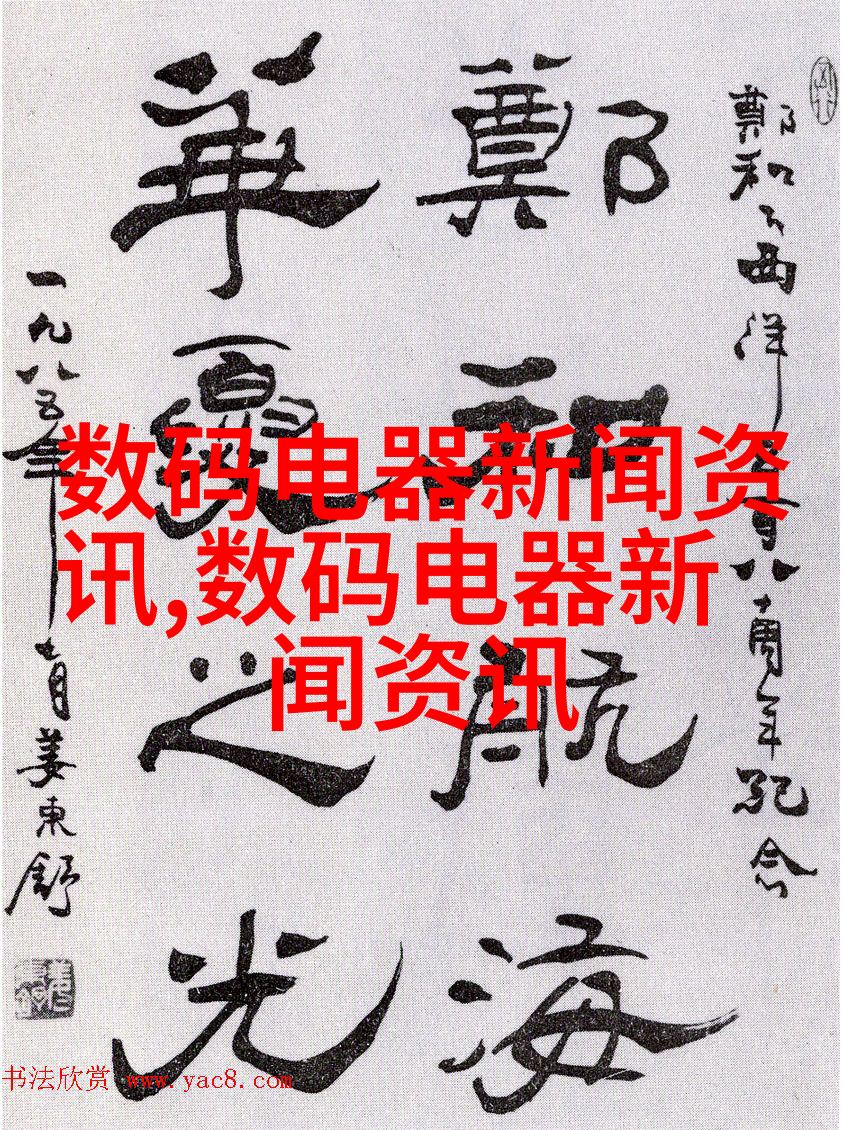 鄭和下西洋五百八十周年紀念
鄭和航海
華夏之光
一九八五年十一月姜東舒
数码电器新闻资
讯,数码电器新
闻资讯
书法欣赏 www.yac8.com